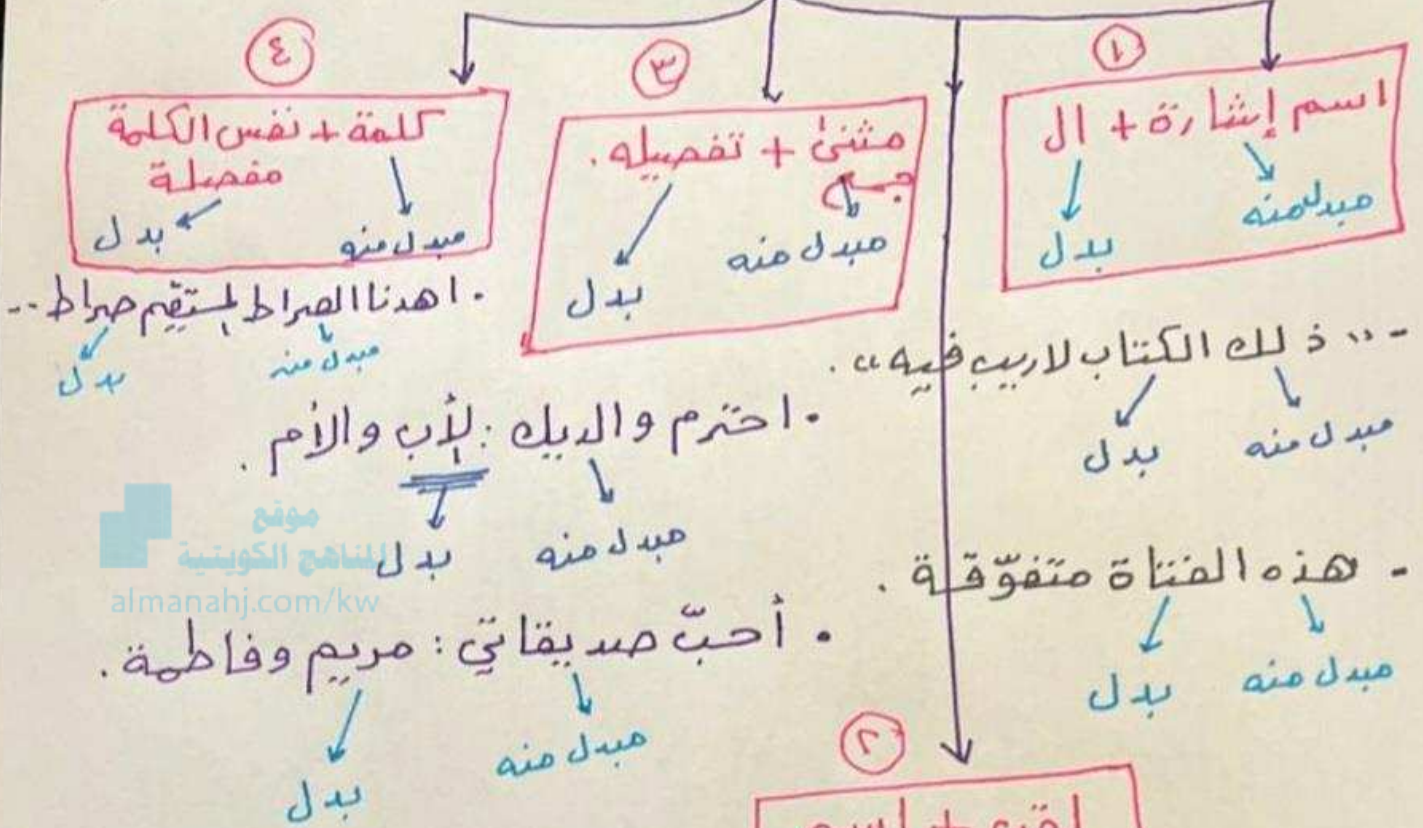 ١
اسم إشارة + ال
مبدل منه
بدل
- "ذلك الكتاب لا ريب فيه".
مبدل منه
بدل
- هذه الفتاة متفوّقة.
مبدل منه
بدل
٢
لقب + اسم
٣
مثنىٰ + تفصيله.
جمع
مبدل منه
بدل
• احترم والديك: الأب والأم.
مبدل منه
بدل
• أحبّ صديقاتي: مريم وفاطمة.
مبدل منه
بدل
٤
كلمة + نفس الكلمة
مفصلة
مبدل منه
بدل
• اهدنا الصراط المستقيم صراط ..
مبدل منه
بدل
موقع
المناهج الكويتية
almanahj.com/kw